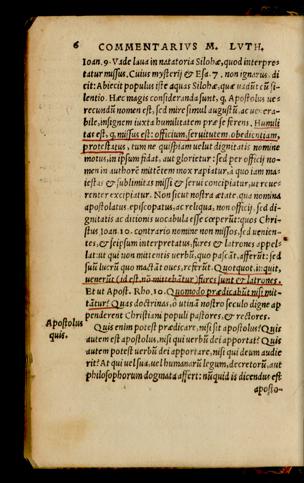 6 COMMENTARIVS M. LVTH.
Ioan. 9. Vade laua in natatoria Silohæ, quod interpre⸗
tatur missus. Cuius mysterij & Esa. 7. non ignarus. di
cit: Abiecit populus iste aquas Silohæ, quæ uadũt cũ si⸗
lentio. Hæc magis consideranda sunt, q̃ Apostolus ue
recundũ nomen est, sed mire simul augustũ, ac uenerabi⸗
le, insignem iuxta humilitatem præ se ferens. Humili
tas est, q̃ missus est: officium, seruitutem, obedientiam,
protestatus, tum ne quispiam uelut dignitatis nomine
motus, in ipsum fidat, aut glorietur: sed per officij no⸗
men in authorẽ mittẽtem mox rapiatur, à quo iam ma
iestas & sublimitas missi & serui concipiatur, ut reue⸗
renter excipiatur. Non sicut nostra ætate, qua nomina
apostolatus, episcopatus, ac reliqua, non officij, sed di⸗
gnitatis ac ditionis uocabula esse cœperũt: quos Chri⸗
stus Ioan. 10. contrario nomine non missos, sed uenien⸗
tes, & seipsum interpretatus, fures & latrones appel⸗
lat: ut qui non mittentis uerbũ, quo pascãt, afferũt: sed
suũ lucrũ quo mactãt oues, referũt. Quotquot, inquit,
uenerũt (id est, nõ mittebãtur) fures sunt & latrones.
Et ut Apost. Rho. 10. Quomodo prædicabũt nisi mit⸗
tãtur? Quas doctrinas, ô utina nostro seculo digne ap
penderent Christiani populi pastores, & rectores.
Apostolus quis.
Quis enim potest prædicare, nisi sit apostolus? Quis
autem est apostolus, nisi qui uerbũ dei apportat? Quis
autem potest uerbũ dei apportare, nisi qui deum audie
rit? At qui uel sua, uel humanarũ legum, decretorũ, aut
philosophorum dogmata affert: nũquid is dicendus est
aposto⸗